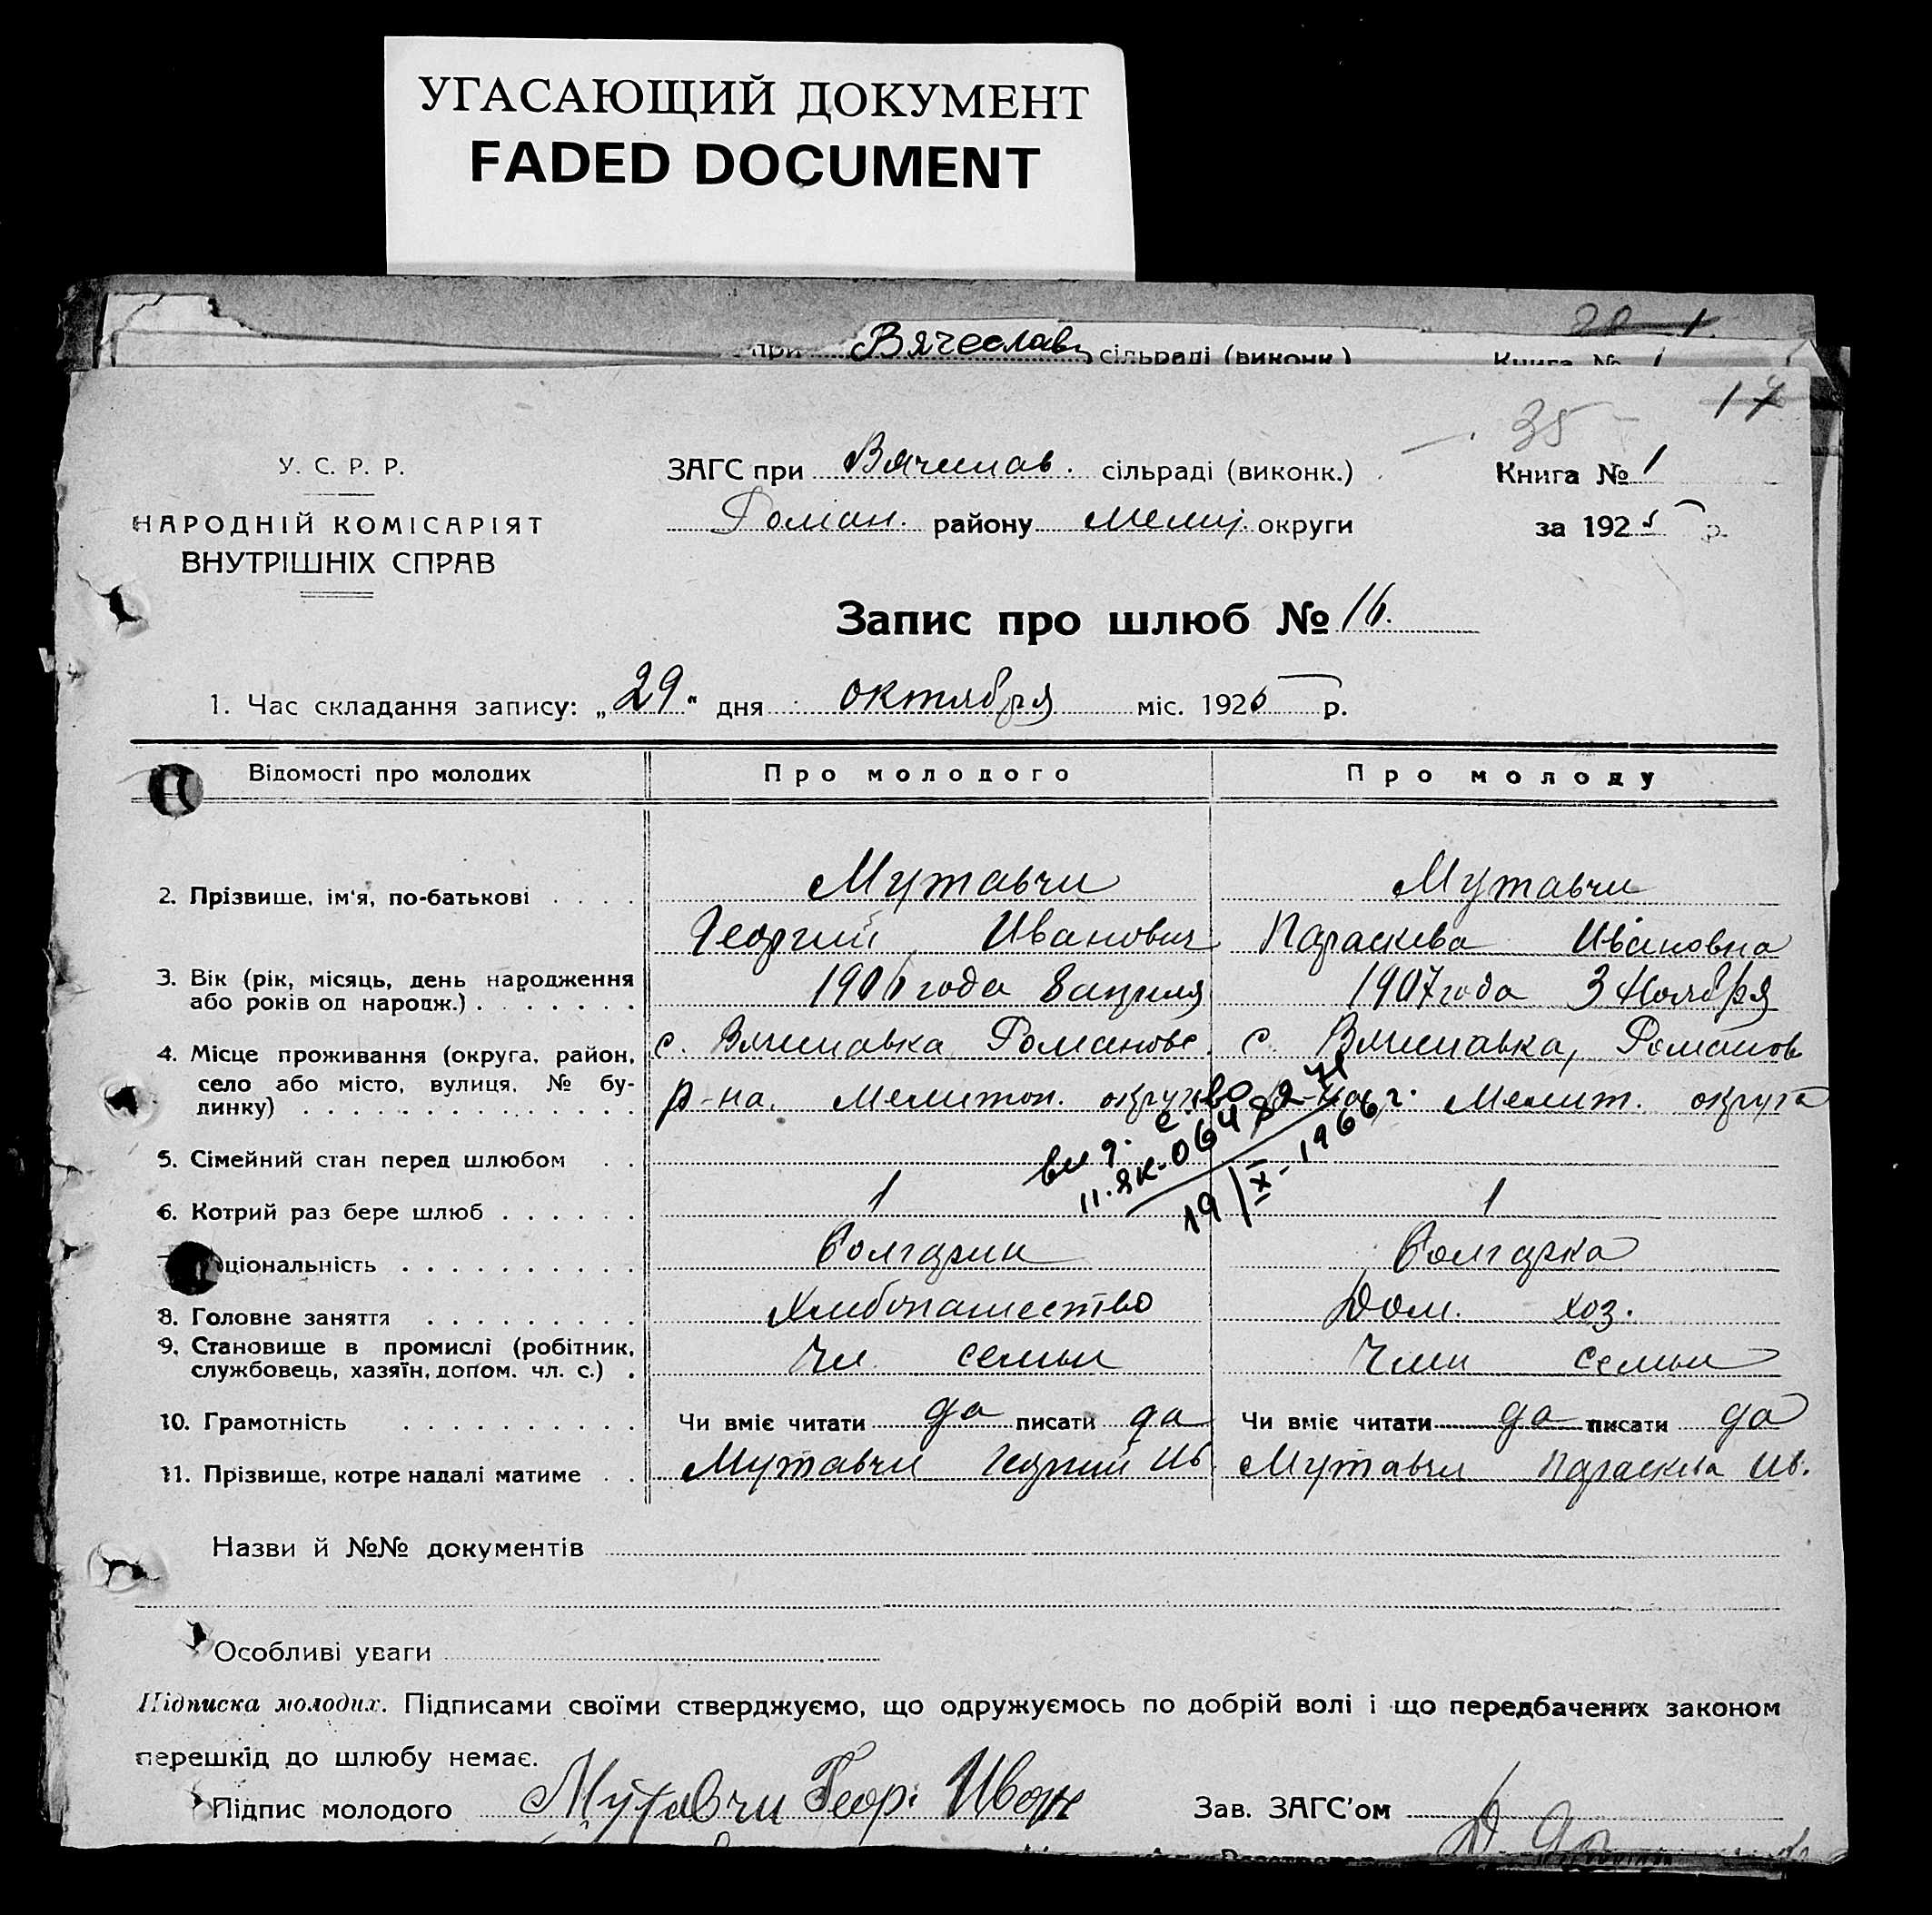 УГАСАЮЩИЙ ДОКУМЕНТ
FADED DOCUMENT
при Вячеславц сільраді (виконк.) Книга № 1
17
35
У. С. Р. Р.
НАРОДНІЙ КОМІСАРІЯТ
ВНУТРІШНІХ СПРАВ
ЗАГС при Вячеслав. сільраді (виконк.)
Роман. району Мелит. округи
Книга № 1
за 1925 р.
Запис про шлюб № 16.
1. Час складання запису: „29" дня октября міс. 1925 р.
Відомості про молодих Про молодого Про молоду
2. Прізвище, ім'я, по-батькові Мутавчи Мутавчи
Георгий Иванович Параскева Ивановна
3. Вік (рік, місяць, день народження або років од народж.) 1906 года 8 апреля 1907 года 3 Ноября
4. Місце проживання (округа, район, село або місто, вулиця, № будинку) с. Вячеславка Романовс. р-на. Мелитоп. округ с. Вячеславка, Романов Мелит. округа
вид.
II-ЯК-064827
19/X-1966 г.
5. Сімейний стан перед шлюбом
6. Котрий раз бере шлюб 1 1
ціональність болгарин болгарка
8. Головне заняття Хлебопашество Дом. хоз.
9. Становище в промислі (робітник, службовець, хазяїн, допом. чл. с.) Чл. семьи Член семьи
10. Грамотність Чи вміє читати да писати да Чи вміє читати да писати да
11. Прізвище, котре надалі матиме Мутавчи Георгий Ив. Мутавчи Параскева Ив.
Назви й №№ документів
Особливі уваги
Підписка молодих. Підписами своїми стверджуємо, що одружуємось по добрій волі і що передбачених законом
перешкід до шлюбу немає.
Підпис молодого Мутавчи Геор. Иван Зав. ЗАГС'ом